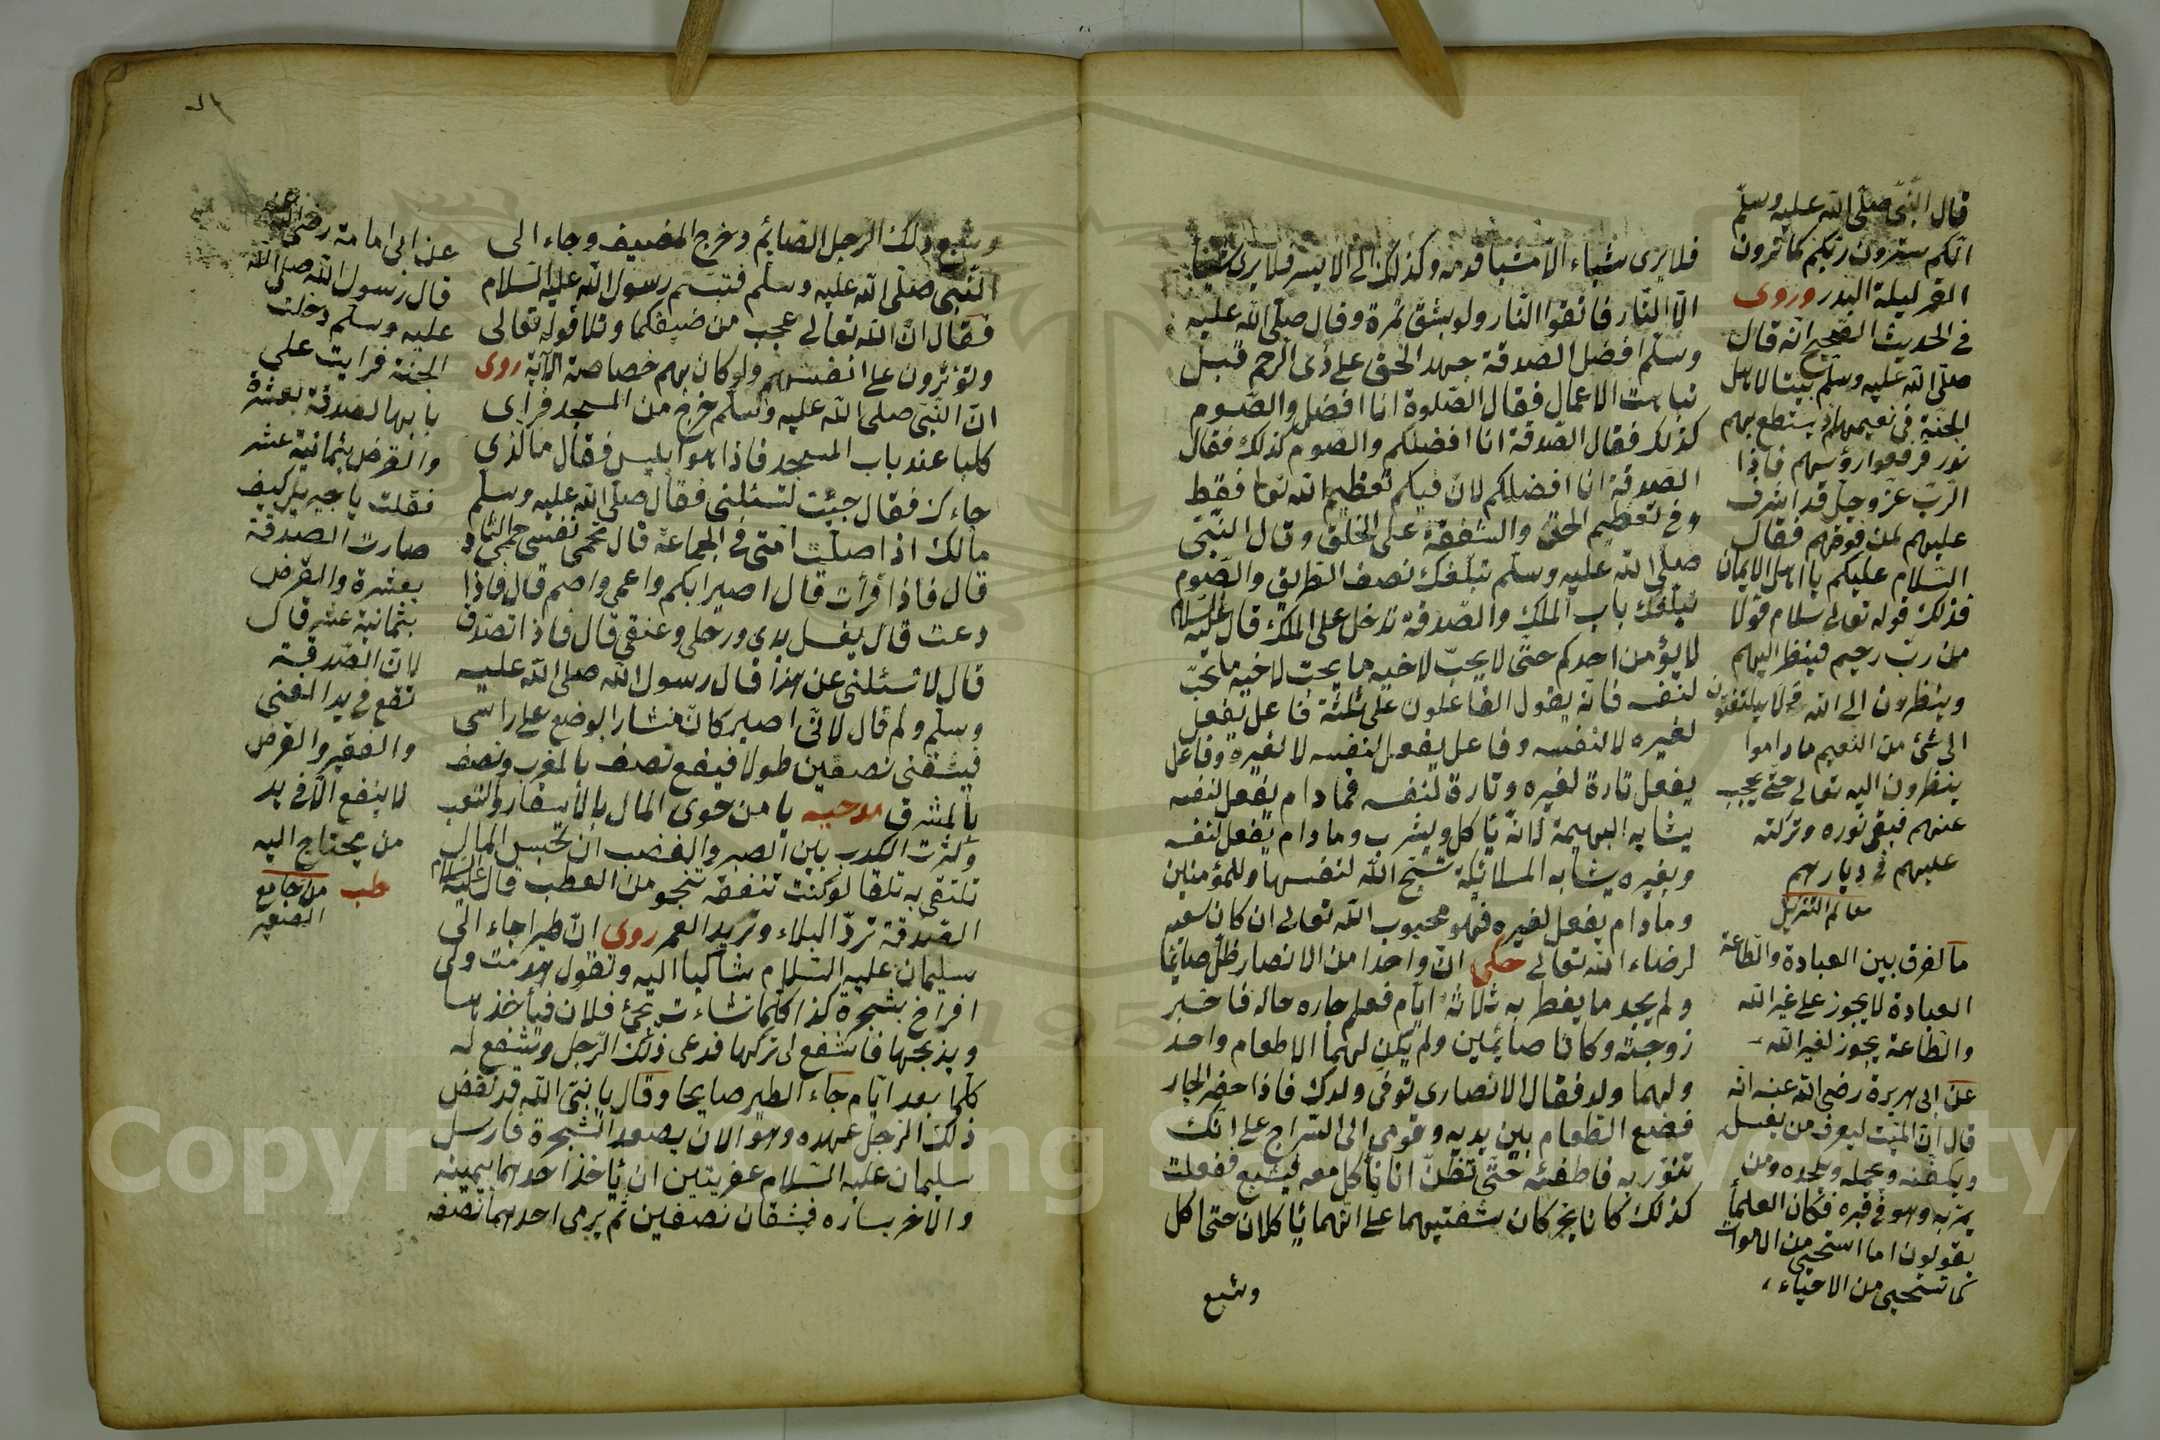 فلا يرى شيئا الا شيئا قدمه وكذلك الى الايسر فلا يرى شيئا
الا النار فاتقوا النار ولو بشق تمرة وقال صلى الله عليه
وسلم افضل الصدقة جهد الحق على ذى الرحم قبل
تباهت الاعمال فقال الصلوة انا افضل والصوم
كذلك فقال الصدقة انا افضلكم والصوم كذلك فقال
الصدقة انا افضلكم لان فيكم تعظيم الله تعا فقط
وفي تعظيم الحق والشفقة على الخلق وقال النبى
صلى الله عليه وسلم تبلغك نصف الطريق والصوم
تبلغك باب الملك والصدقة تدخل على الملك قال عليه السلام
لا يؤمن احدكم حتى لا يحب لاخيه ما يحب لاخيه ما يحب
لنفسه فانه يقول الفاعلون على ثلثة فاعل يفعل
لغيره لا لنفسه وفاعل يفعل لنفسه لا لغيره وفاعل
يفعل تارة لغيره وتارة لنفسه فما دام يفعل لنفسه
يشابه البهيمة لانه يأكل ويشرب وما دام يفعل لنفسه
وبغيره يشابه الملائكة تسبح الله لنفسها وللمؤمنين
وما دام يفعل لغيره فهو محبوب الله تعالى ان كان سعيه
لرضاء الله تعالى حكى ان واحدا من الانصار ظل صائما
ولم يجد ما يفطر به ثلاثة ايام فعلم جاره حاله فاخبر
زوجته وكانا صائمين ولم يكن لهما الا طعام واحد
ولهما ولد فقال الانصارى نومى ولدك فاذا حضر الجار
فضع الطعام بين يديه وقومى الى السراج على انك
تنور به فاطفئه حتى تظن انا نأكل معه فيشبع ففعلت
كذلك كانا يحركان شفتيهما على انهما يأكلان حتى اكل
وشبع
قال النبى صلى الله عليه وسلم
انكم سترون ربكم كما ترون
القمر ليلة البدر وروى
في الحديث الصحيح انه قال
صلى الله عليه وسلم بينا لاهل
الجنة في نعيمهم اذ يسطع بهم
نور فرفعوا رؤسهم فاذا
الرب عز وجل قد اشرف
عليهم لمن فوقهم فقال
السلام عليكم يا اهل الايمان
فذلك قوله تعالى سلام قولا
من رب رحيم فينظر اليهم
وينظرون الى الله فلا يلتفتون
الى شئ من النعيم ما داموا
ينظرون اليه تعالى حتى يحجب
عنهم فبقى نوره وتركته
عليهم في ديارهم
معالم التنزيل
ما الفرق بين العبادة والطاعة
العبادة لا يجوز على غير الله
والطاعة يجوز لغير الله
عن ابى هريرة رضى الله عنه انه
قال ان الميت ليعرف من يغسل
ويكفنه ويحمله ويلحده ومن
يمر به وهو في قبره فكان العلماء
يقولون اما استحيى من الاموات
كما تستحيى من الاحياء
وشبع ذلك الرجل الصايم وخرج المضيف وجاء الى
النبى صلى الله عليه وسلم فتبسم رسول الله عليه السلام
فقال ان الله تعالى عجب من ضيفكما وتلا قوله تعالى
ويؤثرون على انفسهم ولو كان بهم خصاصة الآية روى
ان النبى صلى الله عليه وسلم خرج من المسجد فرأى
كلبا عند باب المسجد فاذا هو ابليس فقال ما الذي
جاءك فقال جئت لتسئلنى فقال صلى الله عليه وسلم
مالك اذا صلت امتى في الجماعة قال تحمى نفسى حمى
قال فاذا قرأت قال اصير ابكم واعمى واصم قال فاذا
دعت قال يغسل يدى ورجلى وعنقى قال فاذا تصدق
قال لا تسئلنى عن هذا قال رسول الله صلى الله عليه
وسلم ولم قال لانى اصير كان منشارا يوضع على راسى
فيشقنى نصفين طولا فيضع نصف بالمغرب ونصف
بالمشرق مدحيه يا من حوى المال بالأسفار والتعب
وكثرت الكدب بين الصبر والغضب ان تحبس المال
تلتقى به تلفا لو كنت تنفقه تنجو من العطب قال عليه السلام
الصدقة ترد البلاء وتزيد العمر روى ان طيرا جاء الى
سليمان عليه السلام شاكيا اليه وتقول هدمت ولى
افراخ بشجرة كذا كلما نشاءت يجئ فلان فيأخذها
ويذبحها فاشفع لى تركها فدعى ذلك الرجل وشفع له
كلما بعد ايام جاء الطير صايحا وقال يا نبى الله قد نقض
ذلك الرجل عهده وهو الان يصعد الشجرة فارسل
سليمان عليه السلام عفريتين ان يأخذ احدهما بيمينه
والاخر يساره فيشقان نصفين ثم يرمى احدهما نصفه
عن ابى امامة رضى الله عنه
قال رسول الله صلى الله
عليه وسلم دخلت
الجنة فرايت على
بابها الصدقة بعشرة
والقرض بثمانية عشر
فقلت يا جبريل كيف
صارت الصدقة
بعشرة والقرض
بثمانية عشر قال
لان الصدقة
تقع في يد الغنى
والفقير والقرض
لا ينفع الا في يد
من يحتاج اليه
طب من جامع
الصغير
Copyright © King Saud University